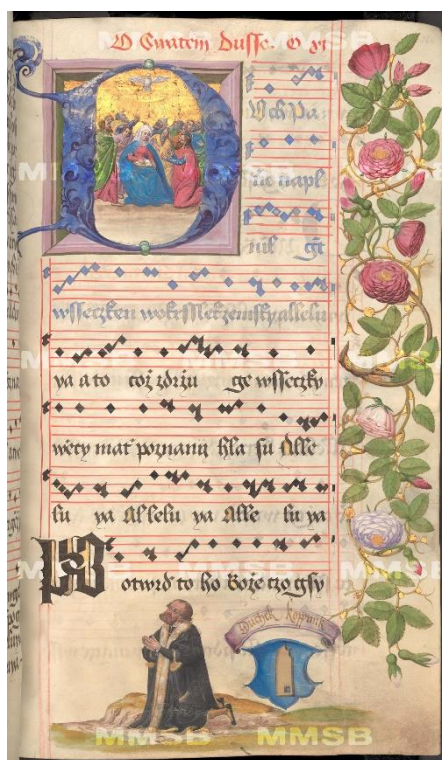 O Swatem Dusse. O xj
Vch Pa
ne napl
nil gt
wsseczken wokrsslek zemsky allelu
ya a to toz zdrzu ge wsseczky
wěcy mat poznany hla su Alle
lu ya Al lelu ya Alle lu ya
Potwrd to ho Boze czo gsy
MMSB MMSB